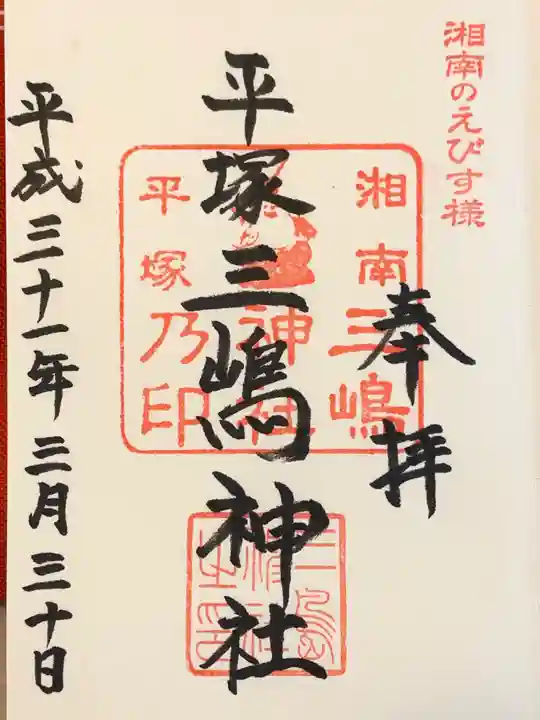 湘南のえびす様
奉拝
湘南三嶋
神社
平塚乃印
平塚三嶋神社
平成三十一年三月三十日